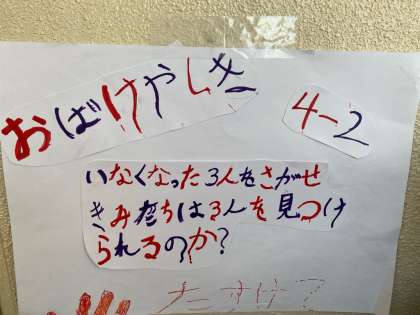 おばけやしき
4-2
いなくなった3人をさがせ
きみたちは3人を見つけ
られるのか?
たすけて